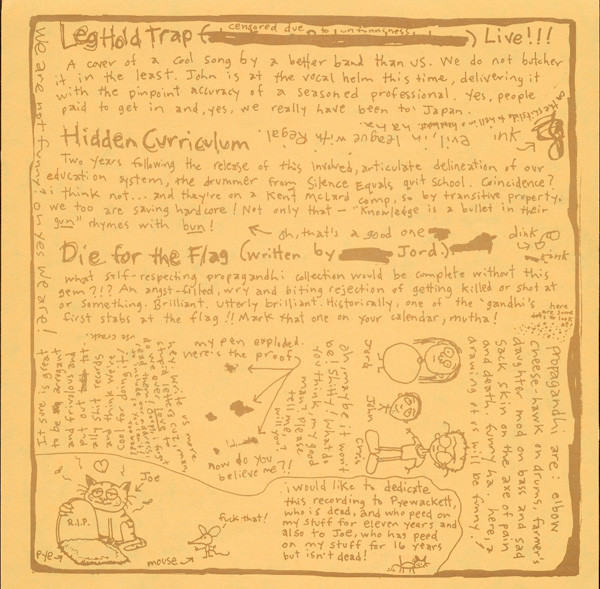 Leg Hold Trap (censored due to unfunnyness) Live!!!
A cover of a cool song by a better band than us. We do not butcher
it in the least. John is at the vocal helm this time, delivering it
with the pinpoint accuracy of a seasoned professional. Yes, people
paid to get in and, yes, we really have been to Japan.
ink: evil, in league with Regal
Hidden Curriculum
Two years following the release of this involved, articulate delineation of our
education system, the drummer from Silence Equals quit school. Coincidence?
i think not... and they're on a Kent McLard comp, so by transitive property,
we too are saving hardcore! Not only that – "Knowledge is a bullet in their
gun" rhymes with bun!
oh, that's a good one
dink
oink
Die for the Flag (written by Jord.)
What self-respecting propagandhi collection would be complete without this
gem?!? An angst-filled, wry and biting rejection of getting killed or shot at
or something. Brilliant. Utterly brilliant. Historically, one of the 'gandhi's
first stabs at the flag!! Mark that one on your calendar, mutha!
we are not funny. oh yes we are!
here
my pen exploded.
Here's the proof
now do you
believe me?!
ah, maybe it won't
be! Shitty! What do
you think, my good
man? please
tell me,
will you?
Jord
John
Chris
Propagandhi are: elbow
cheese-hawk on drums, farmer's
daughter mod on bass and sad
sack skin on the axe of pain
and death. funny ha. here, a
drawing of us will be funny!
i would like to dedicate
this recording to Pyewackett,
who is dead, and who peed on
my stuff for eleven years and
also to Joe, who has peed
on my stuff for 16 years
but isn't dead!
Joe
R.I.P.
pye
mouse
fuck that!